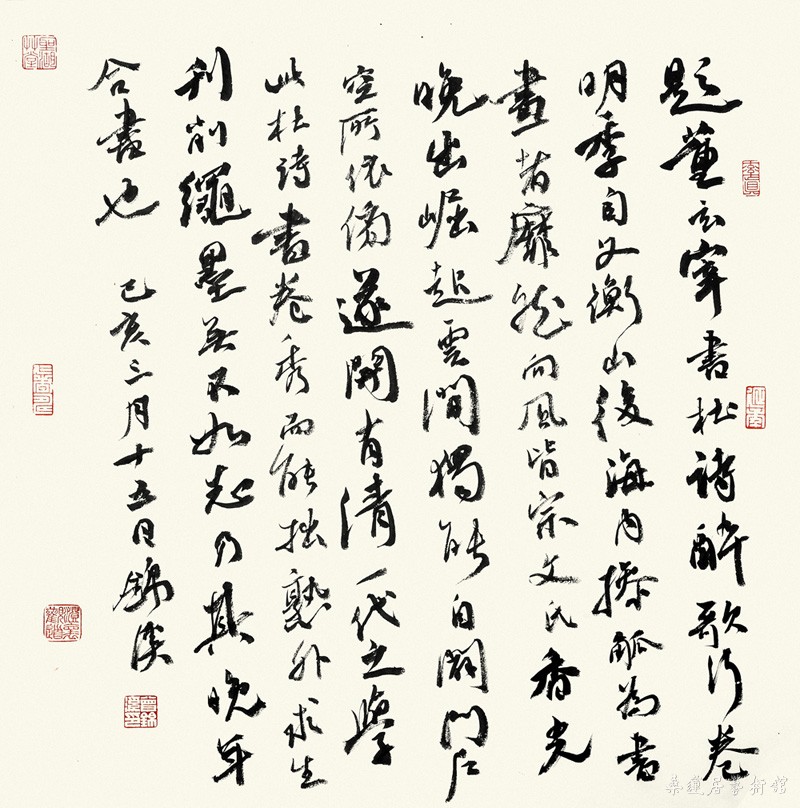 題董玄宰書杜詩醉歌行卷
明季自文衡山後海內操觚為書
畫者靡然向風皆宗文氏香光
晚出崛起雲間獨能自闢門戶
空所依傍遂開有清一代之學
此杜詩書卷秀而能拙熟外求生
刊削繩墨無不如志乃其晚年
合書也 己亥三月十五日錦溪
居藝術館